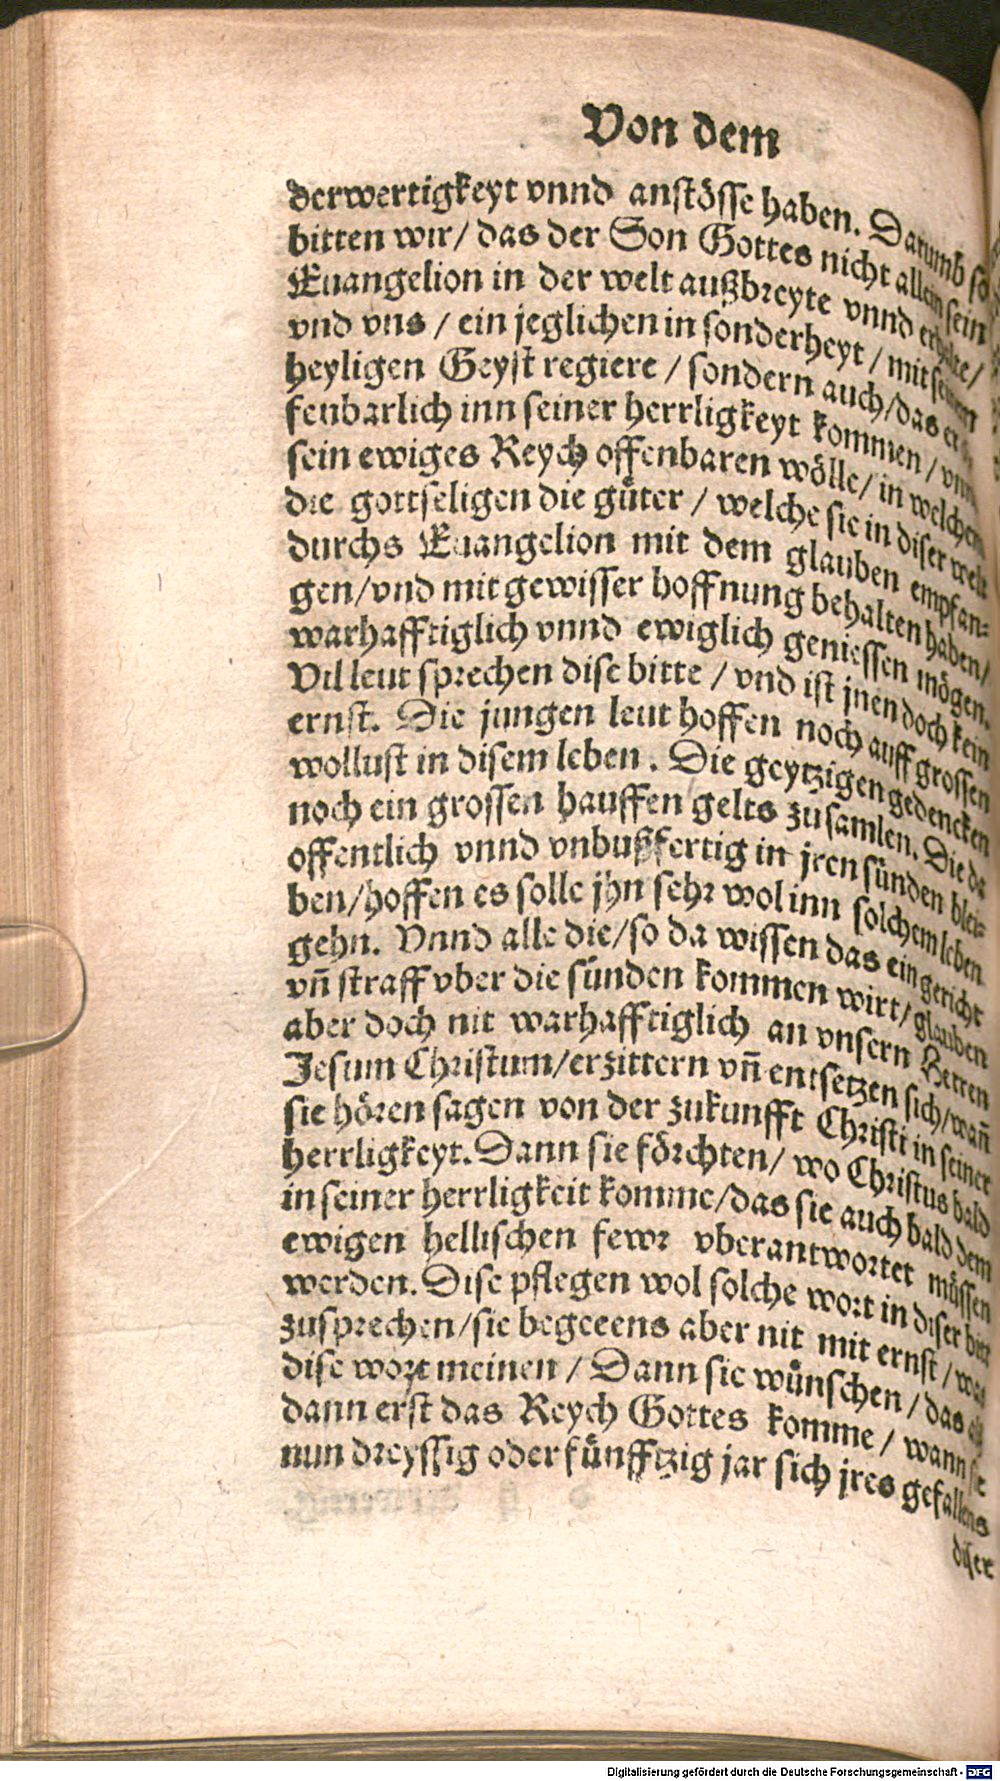 Von dem
derwertigkeyt vnnd anstösse haben. Darumb so
bitten wir/ das der Son Gottes nicht allein sein
Euangelion in der welt außbreyte vnnd erhalte/
vnd vns / ein jeglichen in sonderheyt / mit seinem
heyligen Geyst regiere / sondern auch/das er
fenbarlich inn seiner herrligkeyt kommen / vnnd
sein ewiges Reych offenbaren wölle/ in welchem
die gottseligen die güter / welche sie in diser welt
durchs Euangelion mit dem glauben empfan-
gen/vnd mit gewisser hoffnung behalten haben/
warhafftiglich vnnd ewiglich geniessen mögen.
Vil leut sprechen dise bitte / vnd ist jnen doch kein
ernst. Die jungen leut hoffen noch auff grossen
wollust in disem leben . Die geytzigen gedencken
noch ein grossen hauffen gelts zusamlen. Die da
offentlich vnnd vnbußfertig in jren sünden blei-
ben/hoffen es solle jhn sehr wol inn solchem leben
gehn. Vnnd alle die/so da wissen das ein gericht
vñ straff vber die sünden kommen wirt/ glauben
aber doch nit warhafftiglich an vnsern Herren
Jesum Christum/erzittern vñ entsetzen sich/wañ
sie hören sagen von der zukunfft Christi in seiner
herrligkeyt. Dann sie förchten/ wo Christus bald
in seiner herrligkeit komme/das sie auch bald dem
ewigen hellischen fewr vberantwortet müssen
werden. Dise pflegen wol solche wort in diser bitt
zusprechen/sie begeeens aber nit mit ernst / was
dise wort meinen / Dann sie wünschen / das
dann erst das Reych Gottes komme / wann sie
nun dreyssig oder fünfftzig jar sich jres gefallens
diser
Digitalisierung gefördert durch die Deutsche Forschungsgemeinschaft - DFG